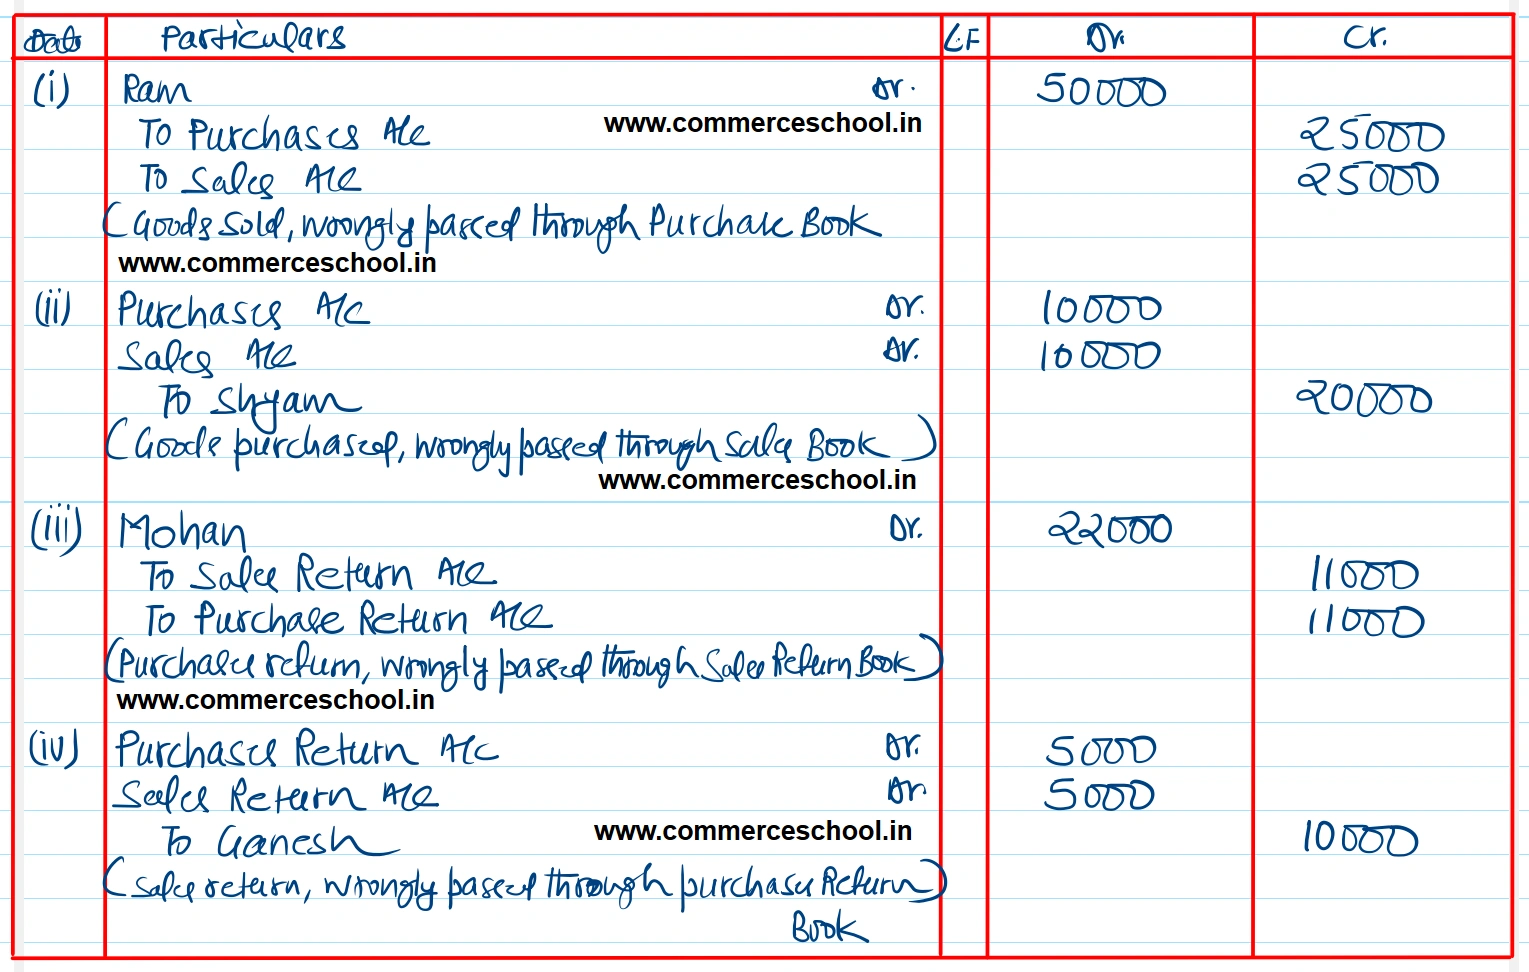 Date Particulars L.F Dr. Cr.
(i) Ram Dr. 50000
To Purchases A/c 25000
www.commerceschool.in
To Sales A/c 25000
(Goods sold, wrongly passed through Purchase Book
www.commerceschool.in
(ii) Purchases A/c Dr. 10000
Sales A/c Dr. 10000
To Shyam 20000
(Goods purchased, wrongly passed through Sales Book)
www.commerceschool.in
(iii) Mohan Dr. 22000
To Sales Return A/c 11000
To Purchase Return A/c 11000
(Purchase return, wrongly passed through Sales Return Book)
www.commerceschool.in
(iv) Purchases Return A/c Dr. 5000
Sales Return A/c Dr 5000
To Ganesh 10000
www.commerceschool.in
(Sales return, wrongly passed through purchases Return)
Book